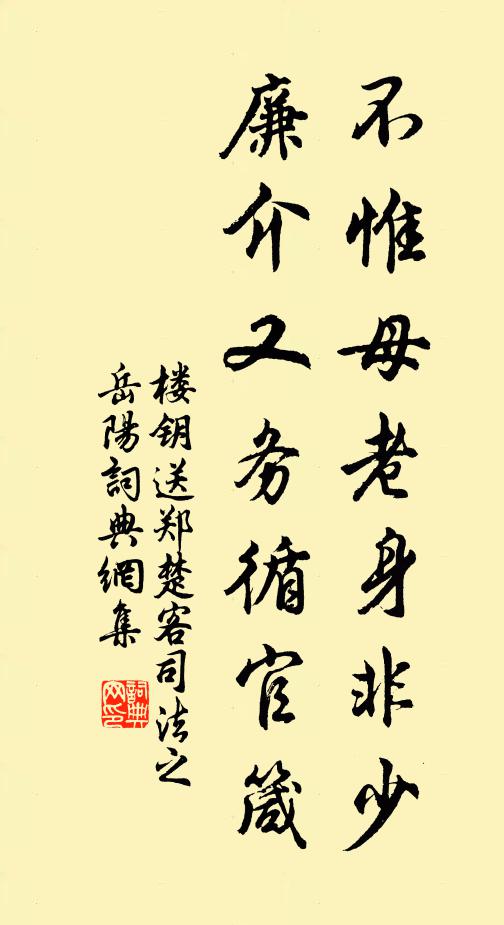 不惟母老身非少
廉介又务循官箴
楼钥送郑楚客司法之
岳陽詞典網集
詞典网印